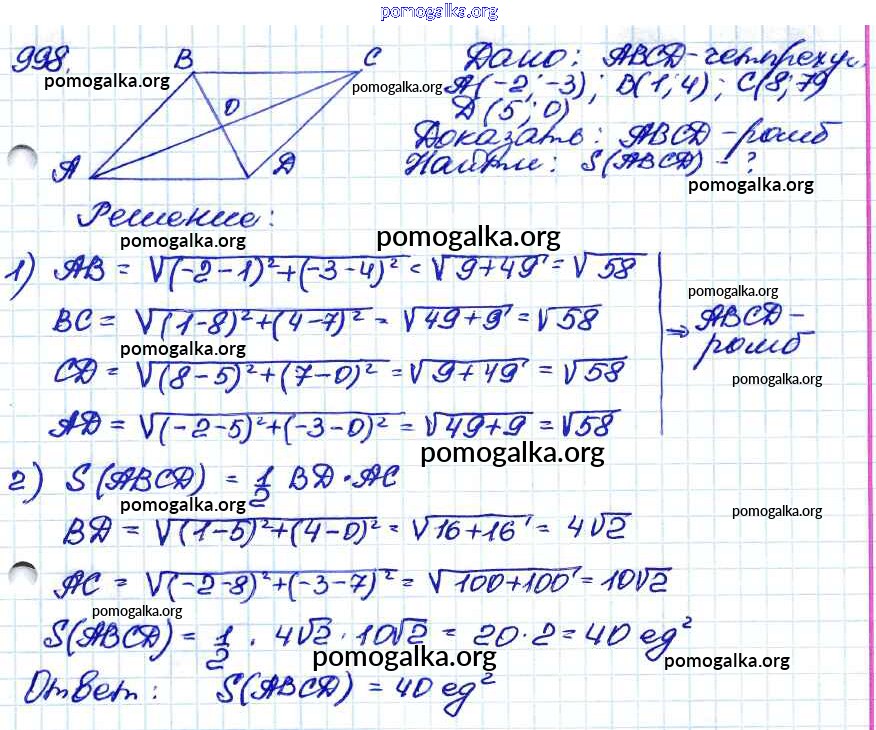 pomogalka.org
998.
B
C
O
A
D
pomogalka.org
Дано: ABCD-четыреху.
pomogalka.org
A(-2;-3); B(1;4); C(8;7)
D(5;0)
Доказать: ABCD-ромб
Найти: S(ABCD) - ?
pomogalka.org
Решение:
pomogalka.org
pomogalka.org
1) AB = √(-2-1)²+(-3-4)² = √9+49 = √58
BC = √(1-8)²+(4-7)² = √49+9 = √58
pomogalka.org
CD = √(8-5)²+(7-0)² = √9+49 = √58
AD = √(-2-5)²+(-3-0)² = √49+9 = √58
pomogalka.org
⇒ ABCD-
ромб
pomogalka.org
pomogalka.org
2) S(ABCD) = 1/2 BD·AC
pomogalka.org
pomogalka.org
BD = √(1-5)²+(4-0)² = √16+16 = 4√2
AC = √(-2-8)²+(-3-7)² = √100+100 = 10√2
pomogalka.org
S(ABCD) = 1/2 · 4√2 · 10√2 = 20·2 = 40 ед²
pomogalka.org
pomogalka.org
Ответ: S(ABCD) = 40 ед²